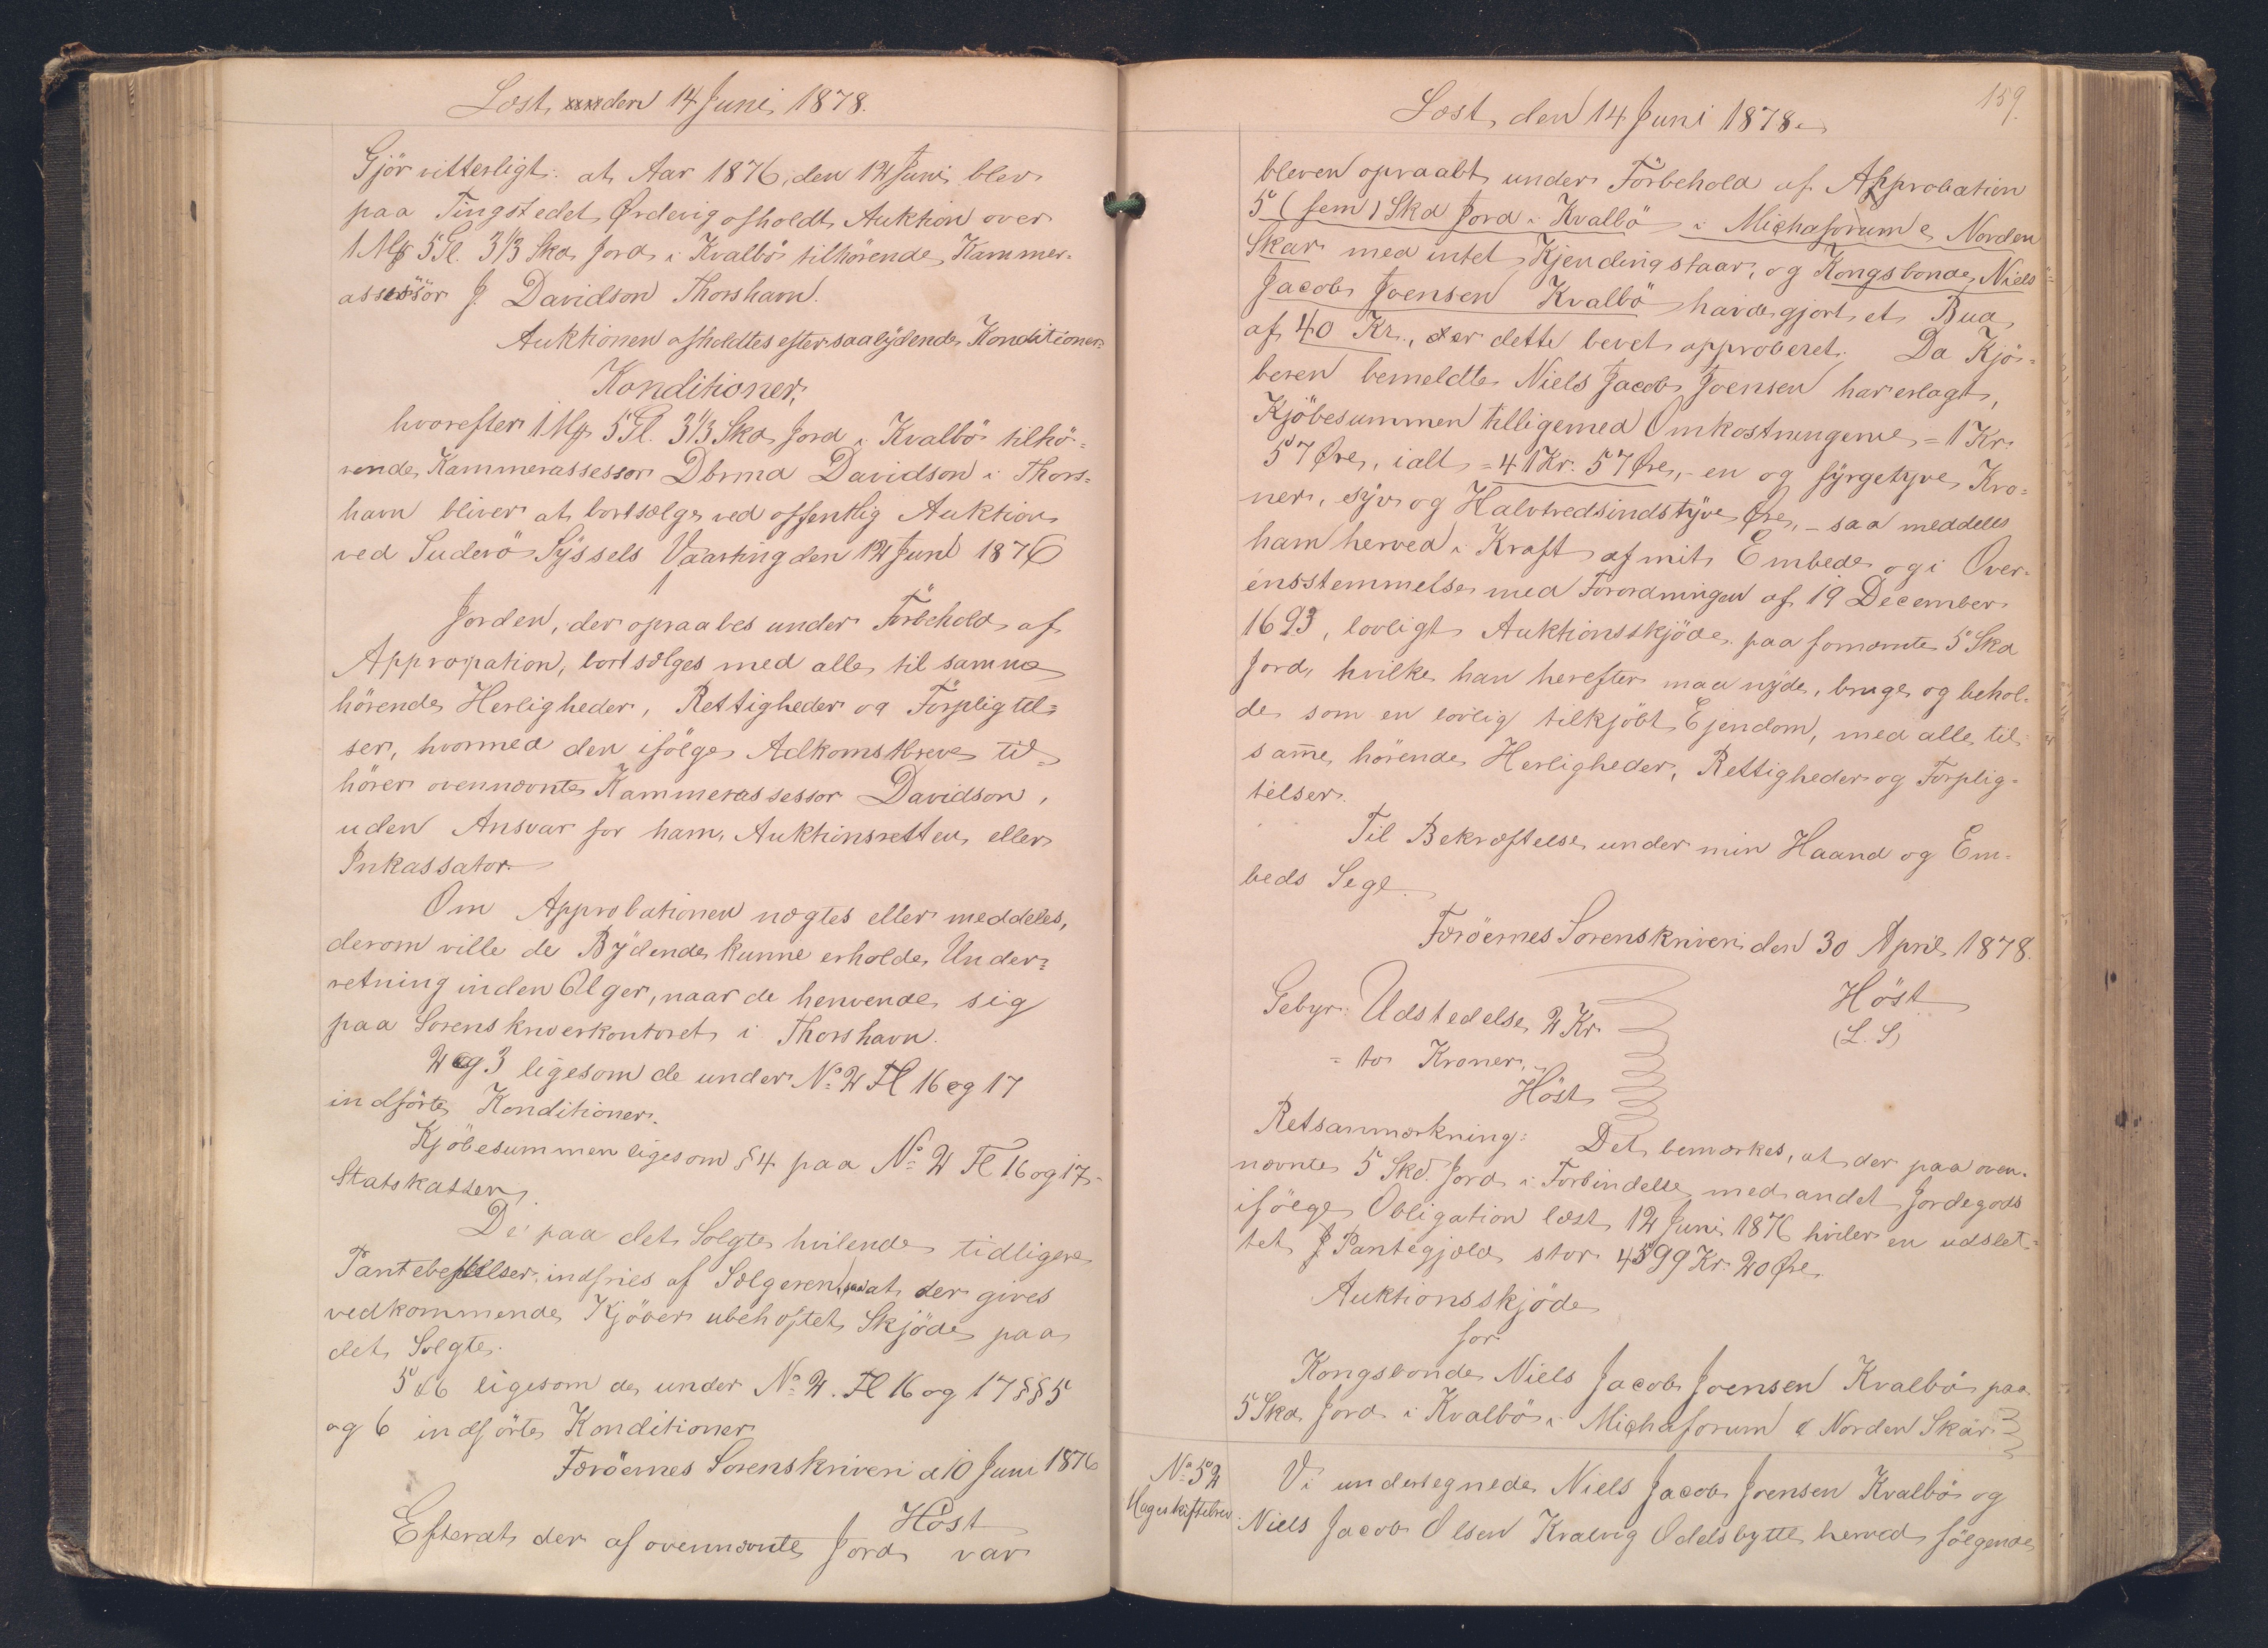 Læst, den 14 Juni 1878.
Gjör vitterligt: at Aar 1876, den 12 Juni blev
paa Tingstedet Ørdevig afholdt Auktion over
1 Mk 5 Gl. 3 1/3 Skd Jord i Kvalbö tilhörende Kammer-
assessör J Davidson Thorshavn.
Auktionen afholdtes efter saalÿdende Konditioner:
Konditioner,
hvorefter 1 Mk 5 Gl. 3 1/3 Skd Jord i Kvalbö tilhö=
rende Kammerassessor Dbrmd Davidson i Thors=
havn bliver at bortsælge ved offentlig Auktion
ved Suderö Sÿssels Vaarting den 12 Juni 1876
1
Jorden, der opraabes under Förbehold af
Appropation, bortsælges med alle til samme
hörende Herligheder, Rettigheder og Förpligtel=
ser, hvormed den ifölge Adkomstbreve til=
hörer ovennævnte Kammerassessor Davidson,
uden Ansvar for ham, Auktionsretten eller
Inkassator.
Om Approbationen nægtes eller meddeles,
derom ville de Bÿdende kunne erholde Under=
retning inden 6 Uger, naar de henvende sig
paa Sorenskriverkontoret i Thorshavn.
2 og 3 ligesom de under No 2 Fl 16 og 17
indförte Konditioner.
Kjöbesummen ligesom § 4 paa No 2 Fl 16 og 17-
Statskassen.
De paa det Solgte hvilende tidligere
Pantebestillelser, indfries af Sælgeren, saa at der gives
vedkommende Kjöber ubehæftet Skjöde paa
det Solgte.
5 & 6 ligesom de under No 2. Fl 16 og 17 §§ 5
og 6 indförte Konditioner
Færöernes Sorenskriveri d 10 Juni 1876
Höst
Efterat der af ovennævnte Jord var
159.
Læst, den 14 Juni 1878.
bleven opraabt under Förbehold af Approbation
5 (fem) Skd Jord i Kvalbö i Michaforum e Norden
Skar med intet Kjendingstaar, og Kongsbonde Niels
Jacob Joensen Kvalbö havde gjort et Bud
af 40 Kr., er dette bevet approberet. Da Kjö=
beren bemeldte Niels Jacob Joensen har erlagt,
Kjöbesummen tilligemed Omkostningerne = 1 Kr.
57 Øre, ialt = 41 Kr. 57 Øre, - en og fÿrgetyve Kro=
ner, sÿv og Halvtredsindstÿve Øre, - saa meddeles
ham herved i Kraft af mit Embede og i Over-
ensstemmelse med Forordningen af 19 December
1693, lovligt Auktionsskjöde paa fornævnte 5 Skd
Jord, hvilke han herefter maa nÿde, bruge og behol-
de som en lovlig tilkjöbt Ejendom, med alle til
sam̄e hörende Herligheder, Rettigheder og Forplig-
telser.
Til Bekræftelse under min Haand og Em-
beds Segl.
Færöernes Sorenskriveri den 30 April 1878.
Höst
(L. S)
Gebyr: Udstedelse 2 Kr.
= to Kroner.
Höst
Retsanmærkning: Det bemærkes, at der paa oven-
nævnte 5 Skd. Jord i Forbindelse med andet Jordegods
ifölge Obligation læst 12 Juni 1876 hviler en udslet-
tet J Pantegjæld stor 4599 Kr. 20 Øre
Auktionsskjöde
for
Kongsbonde Niels Jacob Joensen Kvalbö paa
5 Skd Jord i Kvalbö i Michaforum e Norden Skar
No 52
Mageskiftebrev
Vi undertegnede Niels Jacob Joensen Kvalbö og
Niels Jacob Olsen Kvalvig Odelsbytte herved fölgende